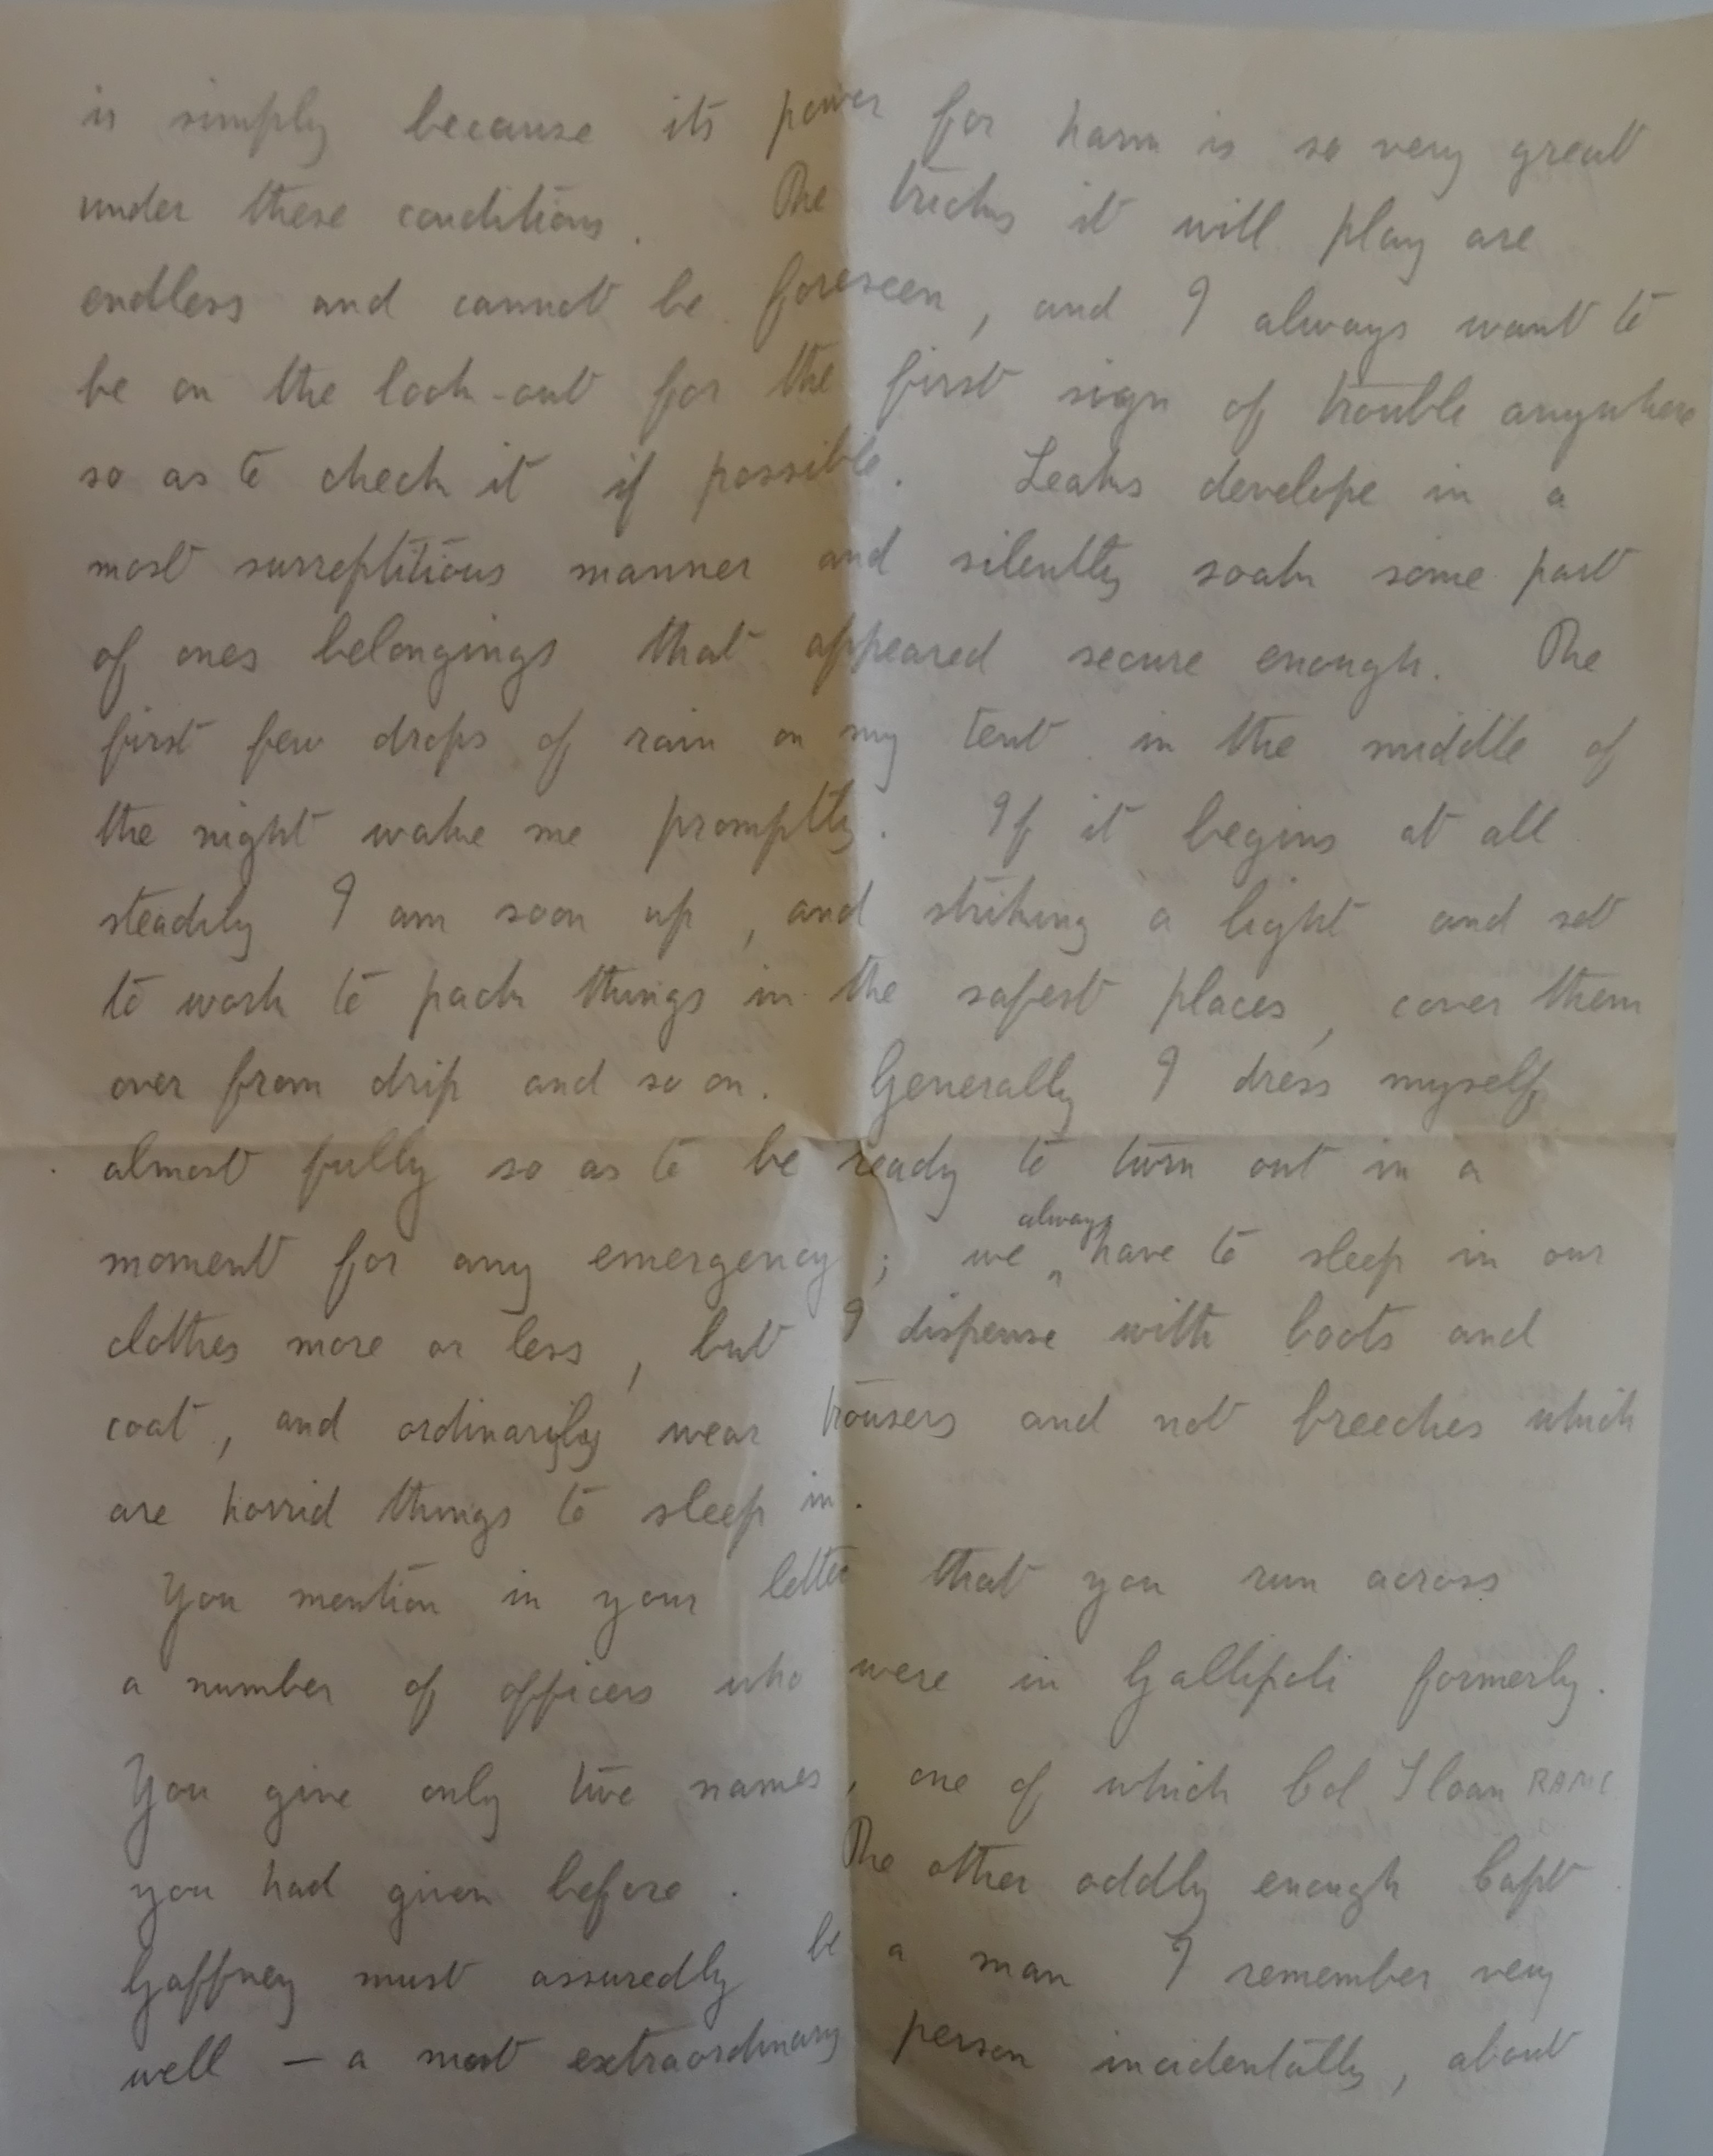 is simply because its power for harm is so very great
under these conditions. The tricks it will play are
endless and cannot be foreseen, and I always want to
be on the look-out for the first sign of trouble anywhere
so as to check it if possible. Leaks develope in a
most surreptitious manner and silently soak some part
of ones belongings that appeared secure enough. The
first few drops of rain on my tent in the middle of
the night wake me promptly. If it begins at all
steadily I am soon up, and striking a light and set
to work to pack things in the safest places, cover them
over from drip and so on. Generally I dress myself
almost fully so as to be ready to turn out in a
moment for any emergency; we always have to sleep in our
clothes more or less, but I dispense with boots and
coat, and ordinarily wear trousers and not breeches which
are horrid things to sleep in.
You mention in your letter that you run across
a number of officers who were in Gallipoli formerly.
You give only two names, one of which Col Sloan RAMC
you had given before. The other oddly enough Capt
Gaffney must assuredly be a man I remember very
well — a most extraordinary person incidentally, about